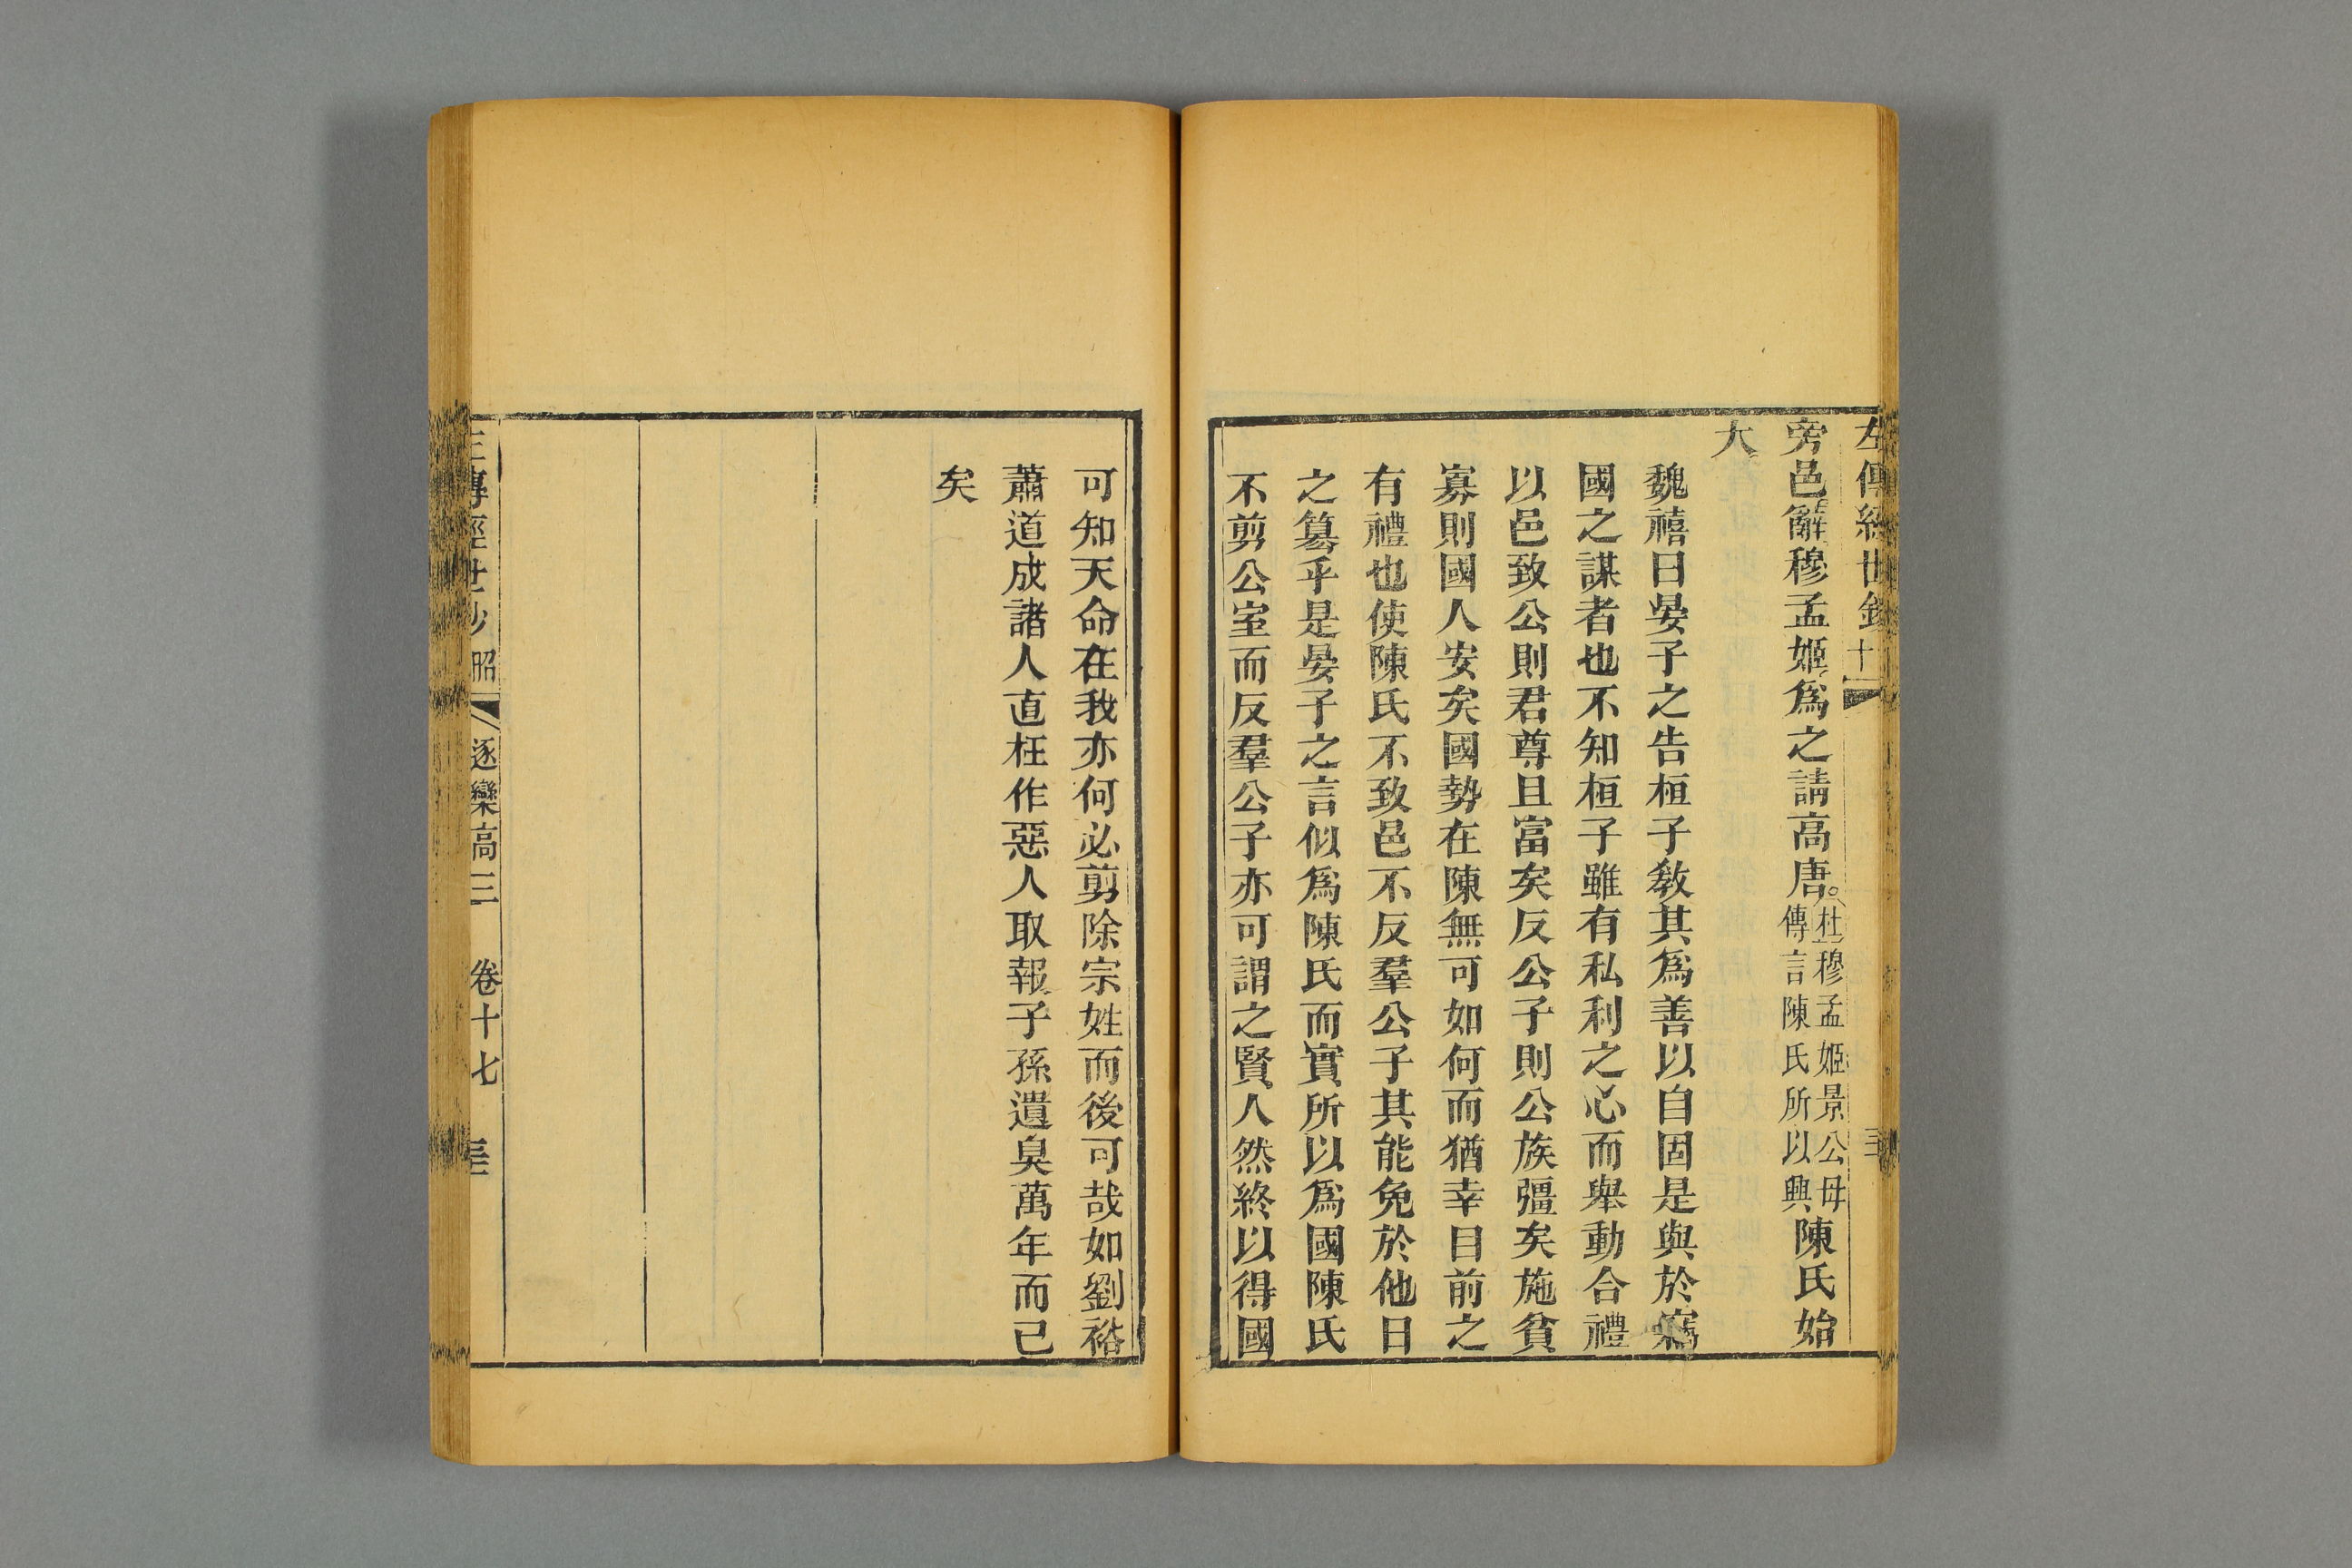 左傳經世鈔
旁邑辭穆孟姬爲之請高唐杜穆孟姬景公母傳言陳氏所以興陳氏始
大
魏禧曰晏子之告桓子教其爲善以自固是與於竊
國之謀者也不知桓子雖有私利之心而舉動合禮
以邑致公則君尊且富矣反公子則公族彊矣施貧
寡則國人安矣國勢在陳無可如何而猶幸目前之
有禮也使陳氏不致邑不反羣公子其能免於他日
之簒乎是晏子之言似爲陳氏而實所以爲國陳氏
不剪公室而反羣公子亦可謂之賢人然終以得國
可知天命在我亦何必剪除宗姓而後可哉如劉裕
蕭道成諸人直枉作惡人取報子孫遺臭萬年而已
矣
左傳經世鈔 昭 逐欒高三 卷十七